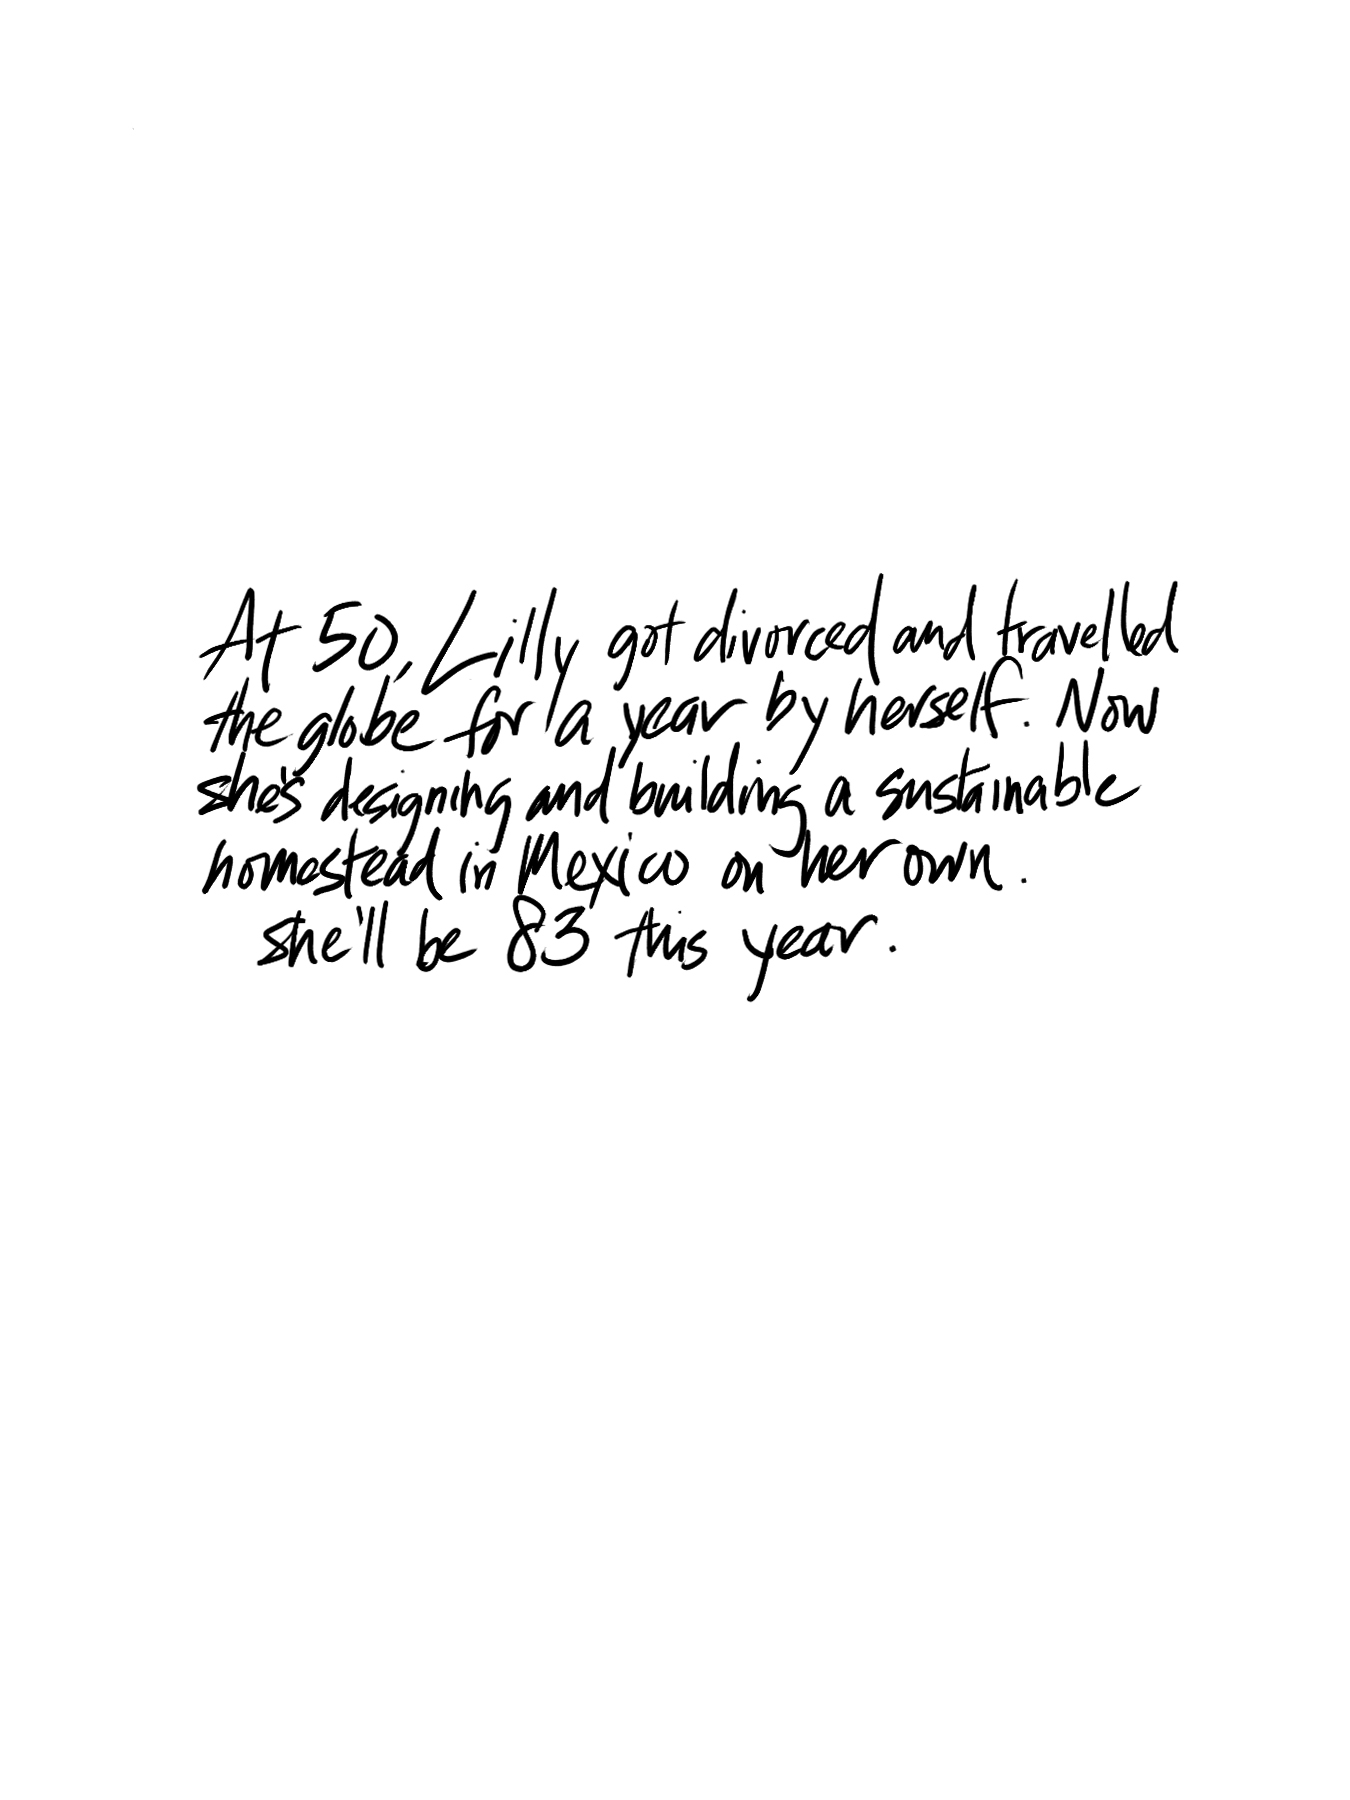 At 50, Lilly got divorced and travelled
the globe for a year by herself. Now
she's designing and building a sustainable
homestead in Mexico on her own.
she'll be 83 this year.